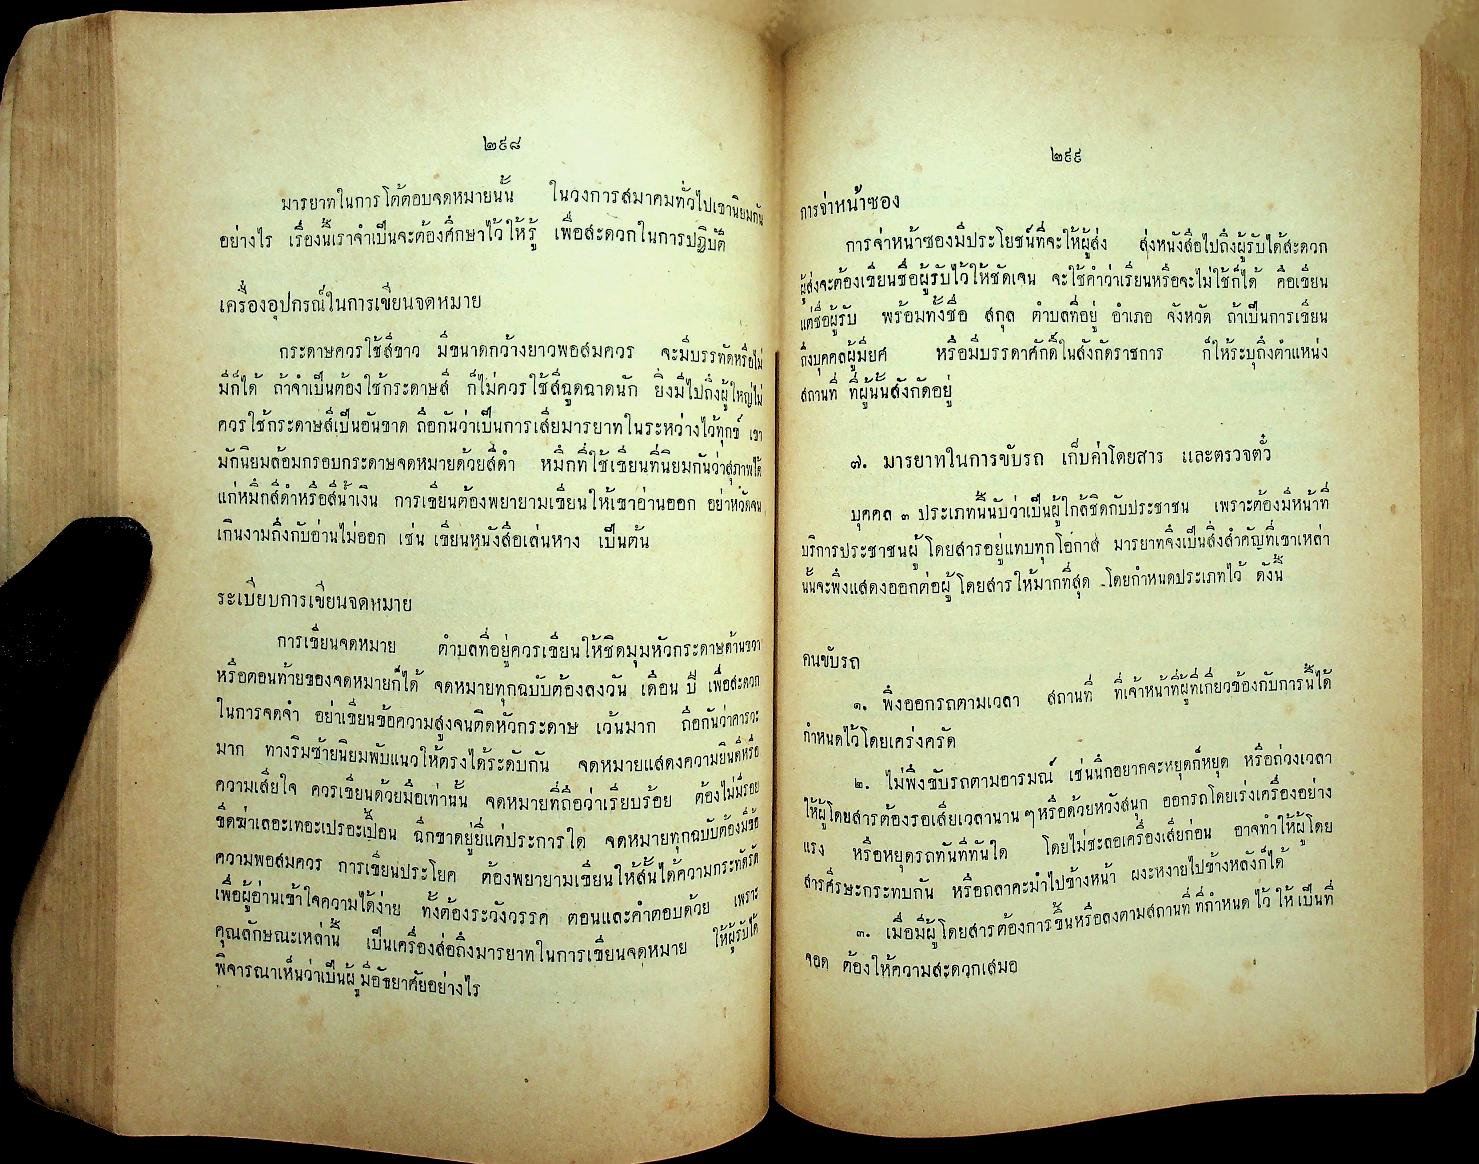 ๒๙๘
มารยาทในการโต้ตอบจดหมายนั้น ในวงการสมาคมทั่วไปเขานิยมกัน
อย่างไร เรื่องนี้เราจำเป็นจะต้องศึกษาไว้ให้รู้ เพื่อสะดวกในการปฏิบัติ
เครื่องอุปกรณ์ในการเขียนจดหมาย
กระดาษควรใช้สีขาว มีขนาดกว้างยาวพอสมควร จะมีบรรทัดหรือไม่
มีก็ได้ ถ้าจำเป็นต้องใช้กระดาษสี ก็ไม่ควรใช้สีฉูดฉาดนัก ยิ่งมีไปถึงผู้ใหญ่ไม่
ควรใช้กระดาษสีเป็นอันขาด ถือกันว่าเป็นการเสียมารยาทในระหว่างไว้ทุกข์ เขา
มักนิยมล้อมกรอบกระดาษจดหมายด้วยสีดำ หมึกที่ใช้เขียนที่นิยมกันว่าสุภาพได้
แก่หมึกสีดำหรือสีน้ำเงิน การเขียนต้องพยายามเขียนให้เขาอ่านออก อย่าหวัดจน
เกินงามถึงกับอ่านไม่ออก เช่น เขียนหนังสือเล่นหาง เป็นต้น
ระเบียบการเขียนจดหมาย
การเขียนจดหมาย ตำบลที่อยู่ควรเขียนให้ชิดมุมหัวกระดาษด้านขวา
หรือตอนท้ายของจดหมายก็ได้ จดหมายทุกฉบับต้องลงวัน เดือน ปี เพื่อสะดวก
ในการจดจำ อย่าเขียนข้อความสูงจนติดหัวกระดาษ เว้นมาก ถือกันว่าคารวะ
มาก ทางริมซ้ายนิยมพับแนวให้ตรงได้ระดับกัน จดหมายแสดงความยินดีหรือ
ความเสียใจ ควรเขียนด้วยมือเท่านั้น จดหมายที่ถือว่าเรียบร้อย ต้องไม่มีรอย
ขีดฆ่าเลอะเทอะเปรอะเปื้อน ฉีกขาดยู่ยี่แต่ประการใด จดหมายทุกฉบับต้องมีข้อ
ความพอสมควร การเขียนประโยค ต้องพยายามเขียนให้สั้นได้ความกระทัดรัด
เพื่อผู้อ่านเข้าใจความได้ง่าย ทั้งต้องระวังวรรค ตอนและคำตอบด้วย เพราะ
คุณลักษณะเหล่านี้ เป็นเครื่องส่อถึงมารยาทในการเขียนจดหมาย ให้ผู้รับได้
พิจารณาเห็นว่าเป็นผู้มีอัธยาศัยอย่างไร
๒๙๙
การจ่าหน้าซอง
การจ่าหน้าซองมีประโยชน์ที่จะให้ผู้ส่ง ส่งหนังสือไปถึงผู้รับได้สะดวก
ผู้ส่งจะต้องเขียนชื่อผู้รับไว้ให้ชัดเจน จะใช้คำว่าเรียนหรือจะไม่ใช้ก็ได้ คือเขียน
แต่ชื่อผู้รับ พร้อมทั้งชื่อ สกุล ตำบลที่อยู่ อำเภอ จังหวัด ถ้าเป็นการเขียน
ถึงบุคคลผู้มียศ หรือมีบรรดาศักดิ์ในสังกัดราชการ ก็ให้ระบุถึงตำแหน่ง
สถานที่ ที่ผู้นั้นสังกัดอยู่
๗. มารยาทในการขับรถ เก็บค่าโดยสาร และตรวจตั๋ว
บุคคล ๓ ประเภทนี้นับว่าเป็นผู้ใกล้ชิดกับประชาชน เพราะต้องมีหน้าที่
บริการประชาชนผู้โดยสารอยู่แทบทุกโอกาส มารยาทจึงเป็นสิ่งสำคัญที่เขาเหล่า
นั้นจะพึงแสดงออกต่อผู้โดยสารให้มากที่สุด โดยกำหนดประเภทไว้ ดังนี้
คนขับรถ
๑. พึงออกรถตามเวลา สถานที่ ที่เจ้าหน้าที่ผู้ที่เกี่ยวข้องกับการนี้ได้
กำหนดไว้โดยเคร่งครัด
๒. ไม่พึงขับรถตามอารมณ์ เช่นนึกอยากจะหยุดก็หยุด หรือถ่วงเวลา
ให้ผู้โดยสารต้องรอเสียเวลานาน ๆ หรือด้วยหวังสนุก ออกรถโดยเร่งเครื่องอย่าง
แรง หรือหยุดรถทันทีทันใด โดยไม่ชะลอเครื่องเสียก่อน อาจทำให้ผู้โดย
สารศีรษะกระทบกัน หรือถลาคะมำไปข้างหน้า ผงะหงายไปข้างหลังก็ได้
๓. เมื่อมีผู้โดยสารต้องการขึ้นหรือลงตามสถานที่ที่กำหนดไว้ให้เป็นที่
จอด ต้องให้ความสะดวกเสมอ